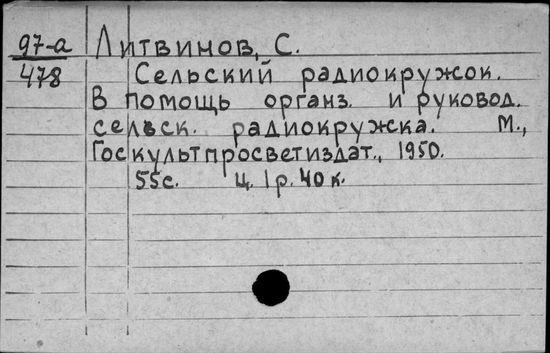 97-а Литвинов, С.
478 Сельский радиокружок.
В помощь органз. и руковод.
сельск. радиокружка. М.,
Госкультпросветиздат., 1950.
55с. Ц. 1р. 40к.